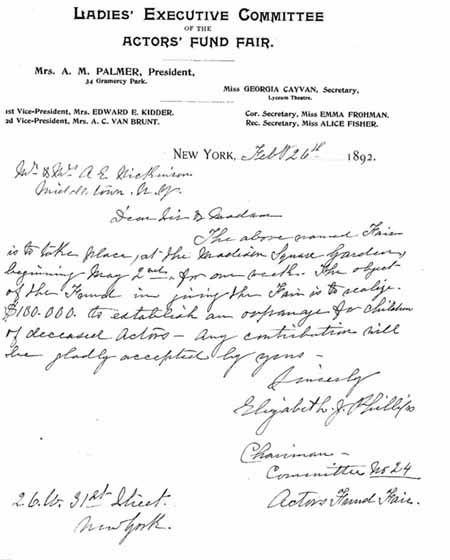 LADIES' EXECUTIVE COMMITTEE
OF THE
ACTORS' FUND FAIR.
MRS. A. M. PALMER, President,
34 Gramercy Park.
MISS GEORGIA CAYVAN, Secretary,
Lyceum Theatre.
1st Vice-President, MRS. EDWARD E. KIDDER.
2d Vice-President, MRS. A. C. VAN BRUNT.
Cor. Secretary, MISS EMMA FROHMAN.
Rec. Secretary, MISS ALICE FISHER.
NEW YORK, Feb 26th 1892.
Mr & Mrs A. E. Dickinson
Middletown. N.Y.
Dear Sir & Madam
The above named Fair
is to take place, at the Madison Square Garden,
beginning May 2nd. for one week. The object
of the Fund in giving the Fair is to realize
$100.000. to establish an orphanage for children
of deceased Actors – Any contribution will
be gladly accepted by yours –
Sincerly
Elizabeth J. Phillips
Chairman –
Committee No 24
Actors Fund Fair.
26. W. 31st Street.
New York.